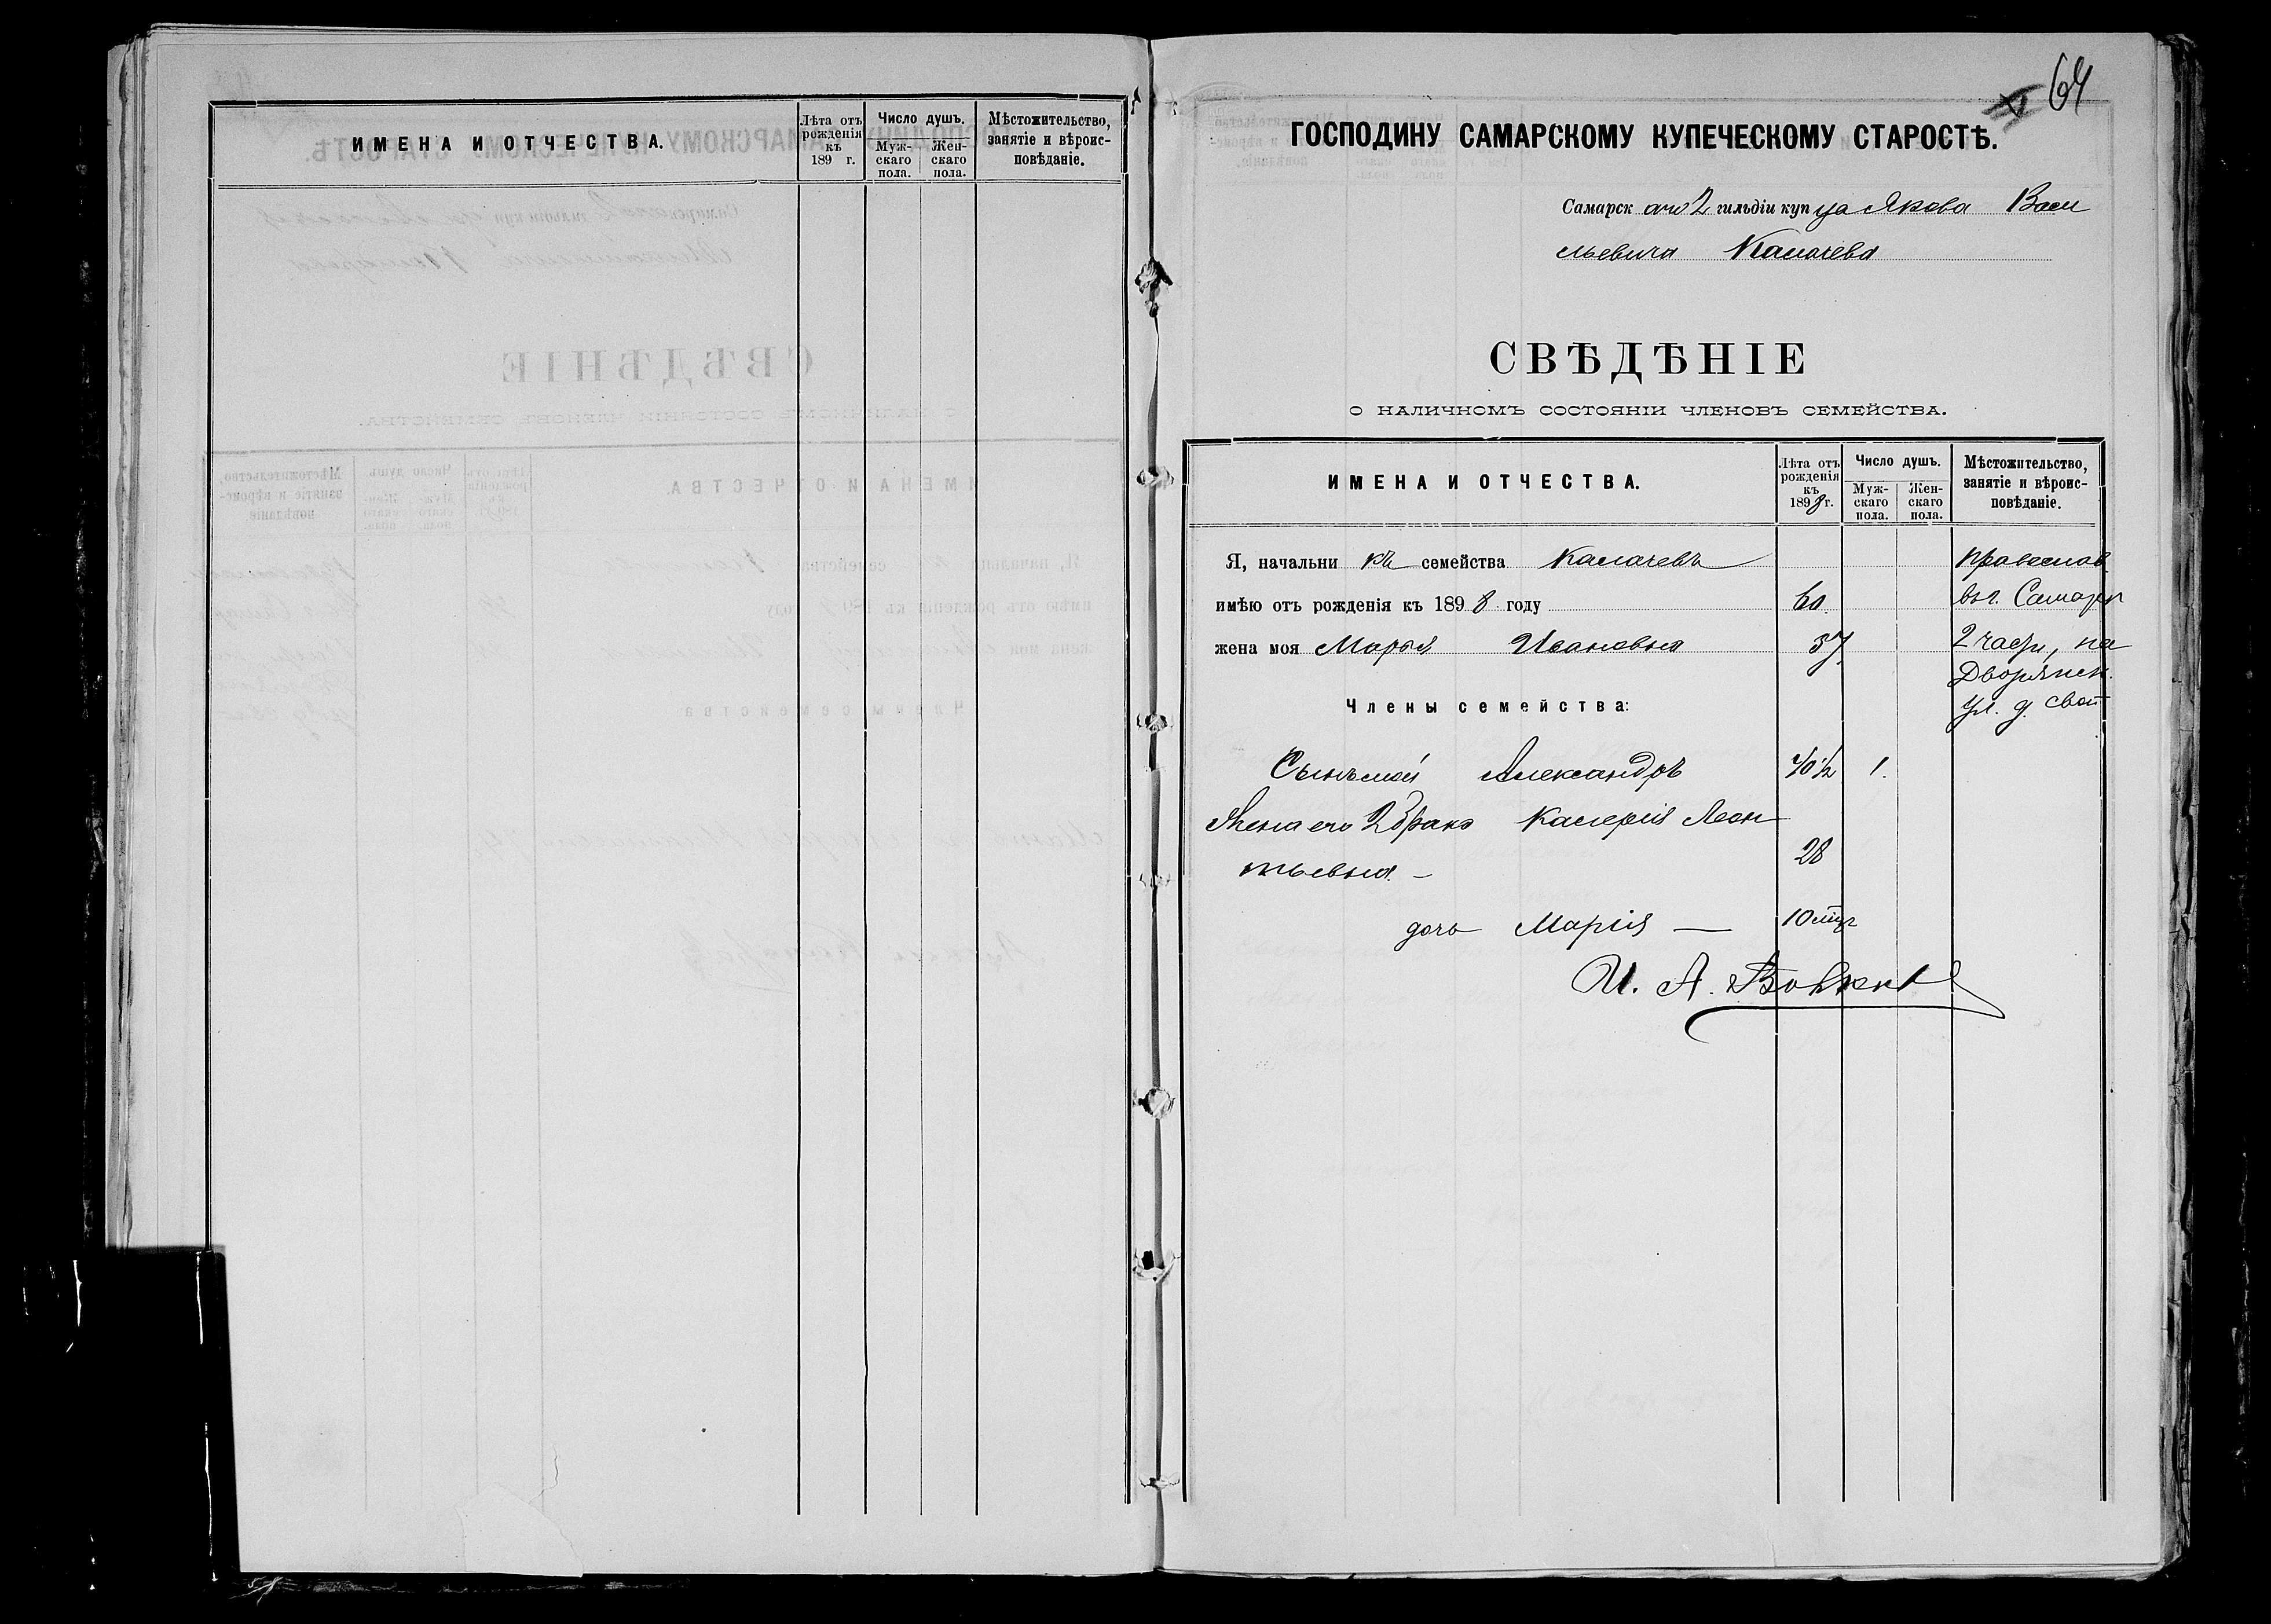 ИМЕНА И ОТЧЕСТВА.
Лѣта отъ рожденія къ 189 г.
Число душъ.
Муж- скаго пола.
Жен- скаго пола.
Мѣстожительство, занятіе и вѣроис- повѣданіе.
64
ГОСПОДИНУ САМАРСКОМУ КУПЕЧЕСКОМУ СТАРОСТѢ.
Самарск аго 2 гильдіи куп ца Якова Васи
льевича Калачева
СВѢДѢНІЕ
О НАЛИЧНОМЪ СОСТОЯНІИ ЧЛЕНОВЪ СЕМЕЙСТВА.
ИМЕНА И ОТЧЕСТВА.
Лѣта отъ рожденія къ 1898 г.
Число душъ.
Муж- скаго пола.
Жен- скаго пола.
Мѣстожительство, занятіе и вѣроис- повѣданіе.
Я, начальни къ семейства Калачевъ православ.
имѣю отъ рожденія къ 1898 году 60. въ г. Самарѣ
жена моя Марья Ивановна 37. 2 части, на
Дворянск.
Члены семейства: ул. д. свой
Сынъ мой Александръ 40½ 1.
Жена его 2 брака Калерія Леон
тьевна - 28
дочь Марія — 10 мѣц
И. А.